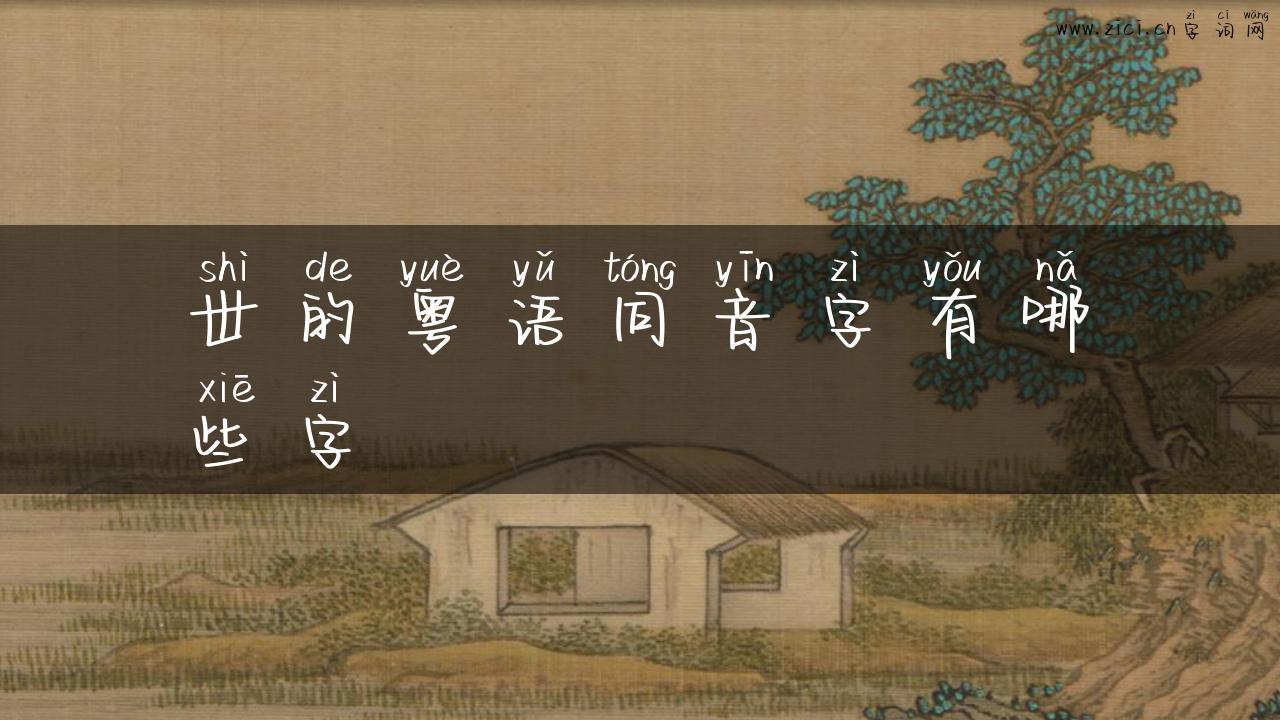 zì cí wǎng
www.zici.cn 字词网
shì de yuè yǔ tóng yīn zì yǒu nǎ
丗的粤语同音字有哪
xiē zì
些字